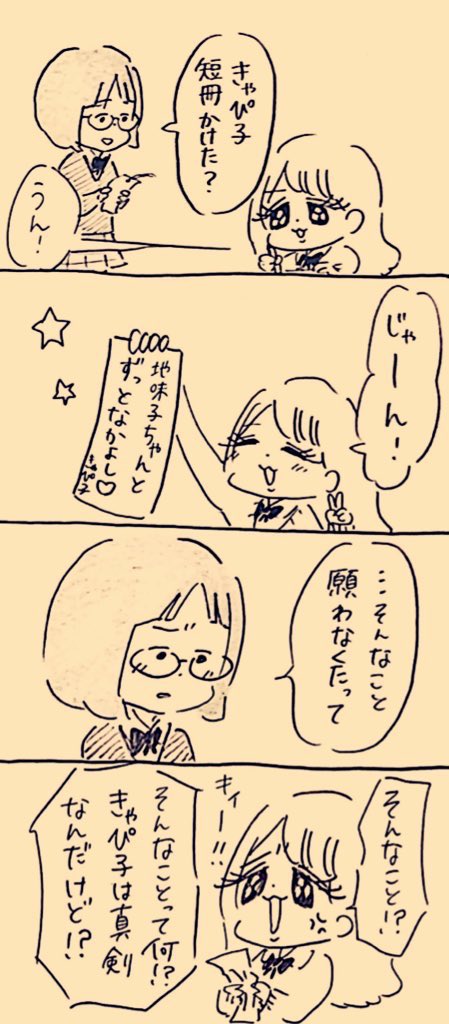 きゃぴ子
短冊かけた？
うん！
じゃーん！
地味子ちゃんと
ずっとなかよし♡
きゃぴ子
…そんなこと
願わなくたって
そんなこと!?
キィー!!
そんなことって何!?
きゃぴ子は真剣
なんだけど!?